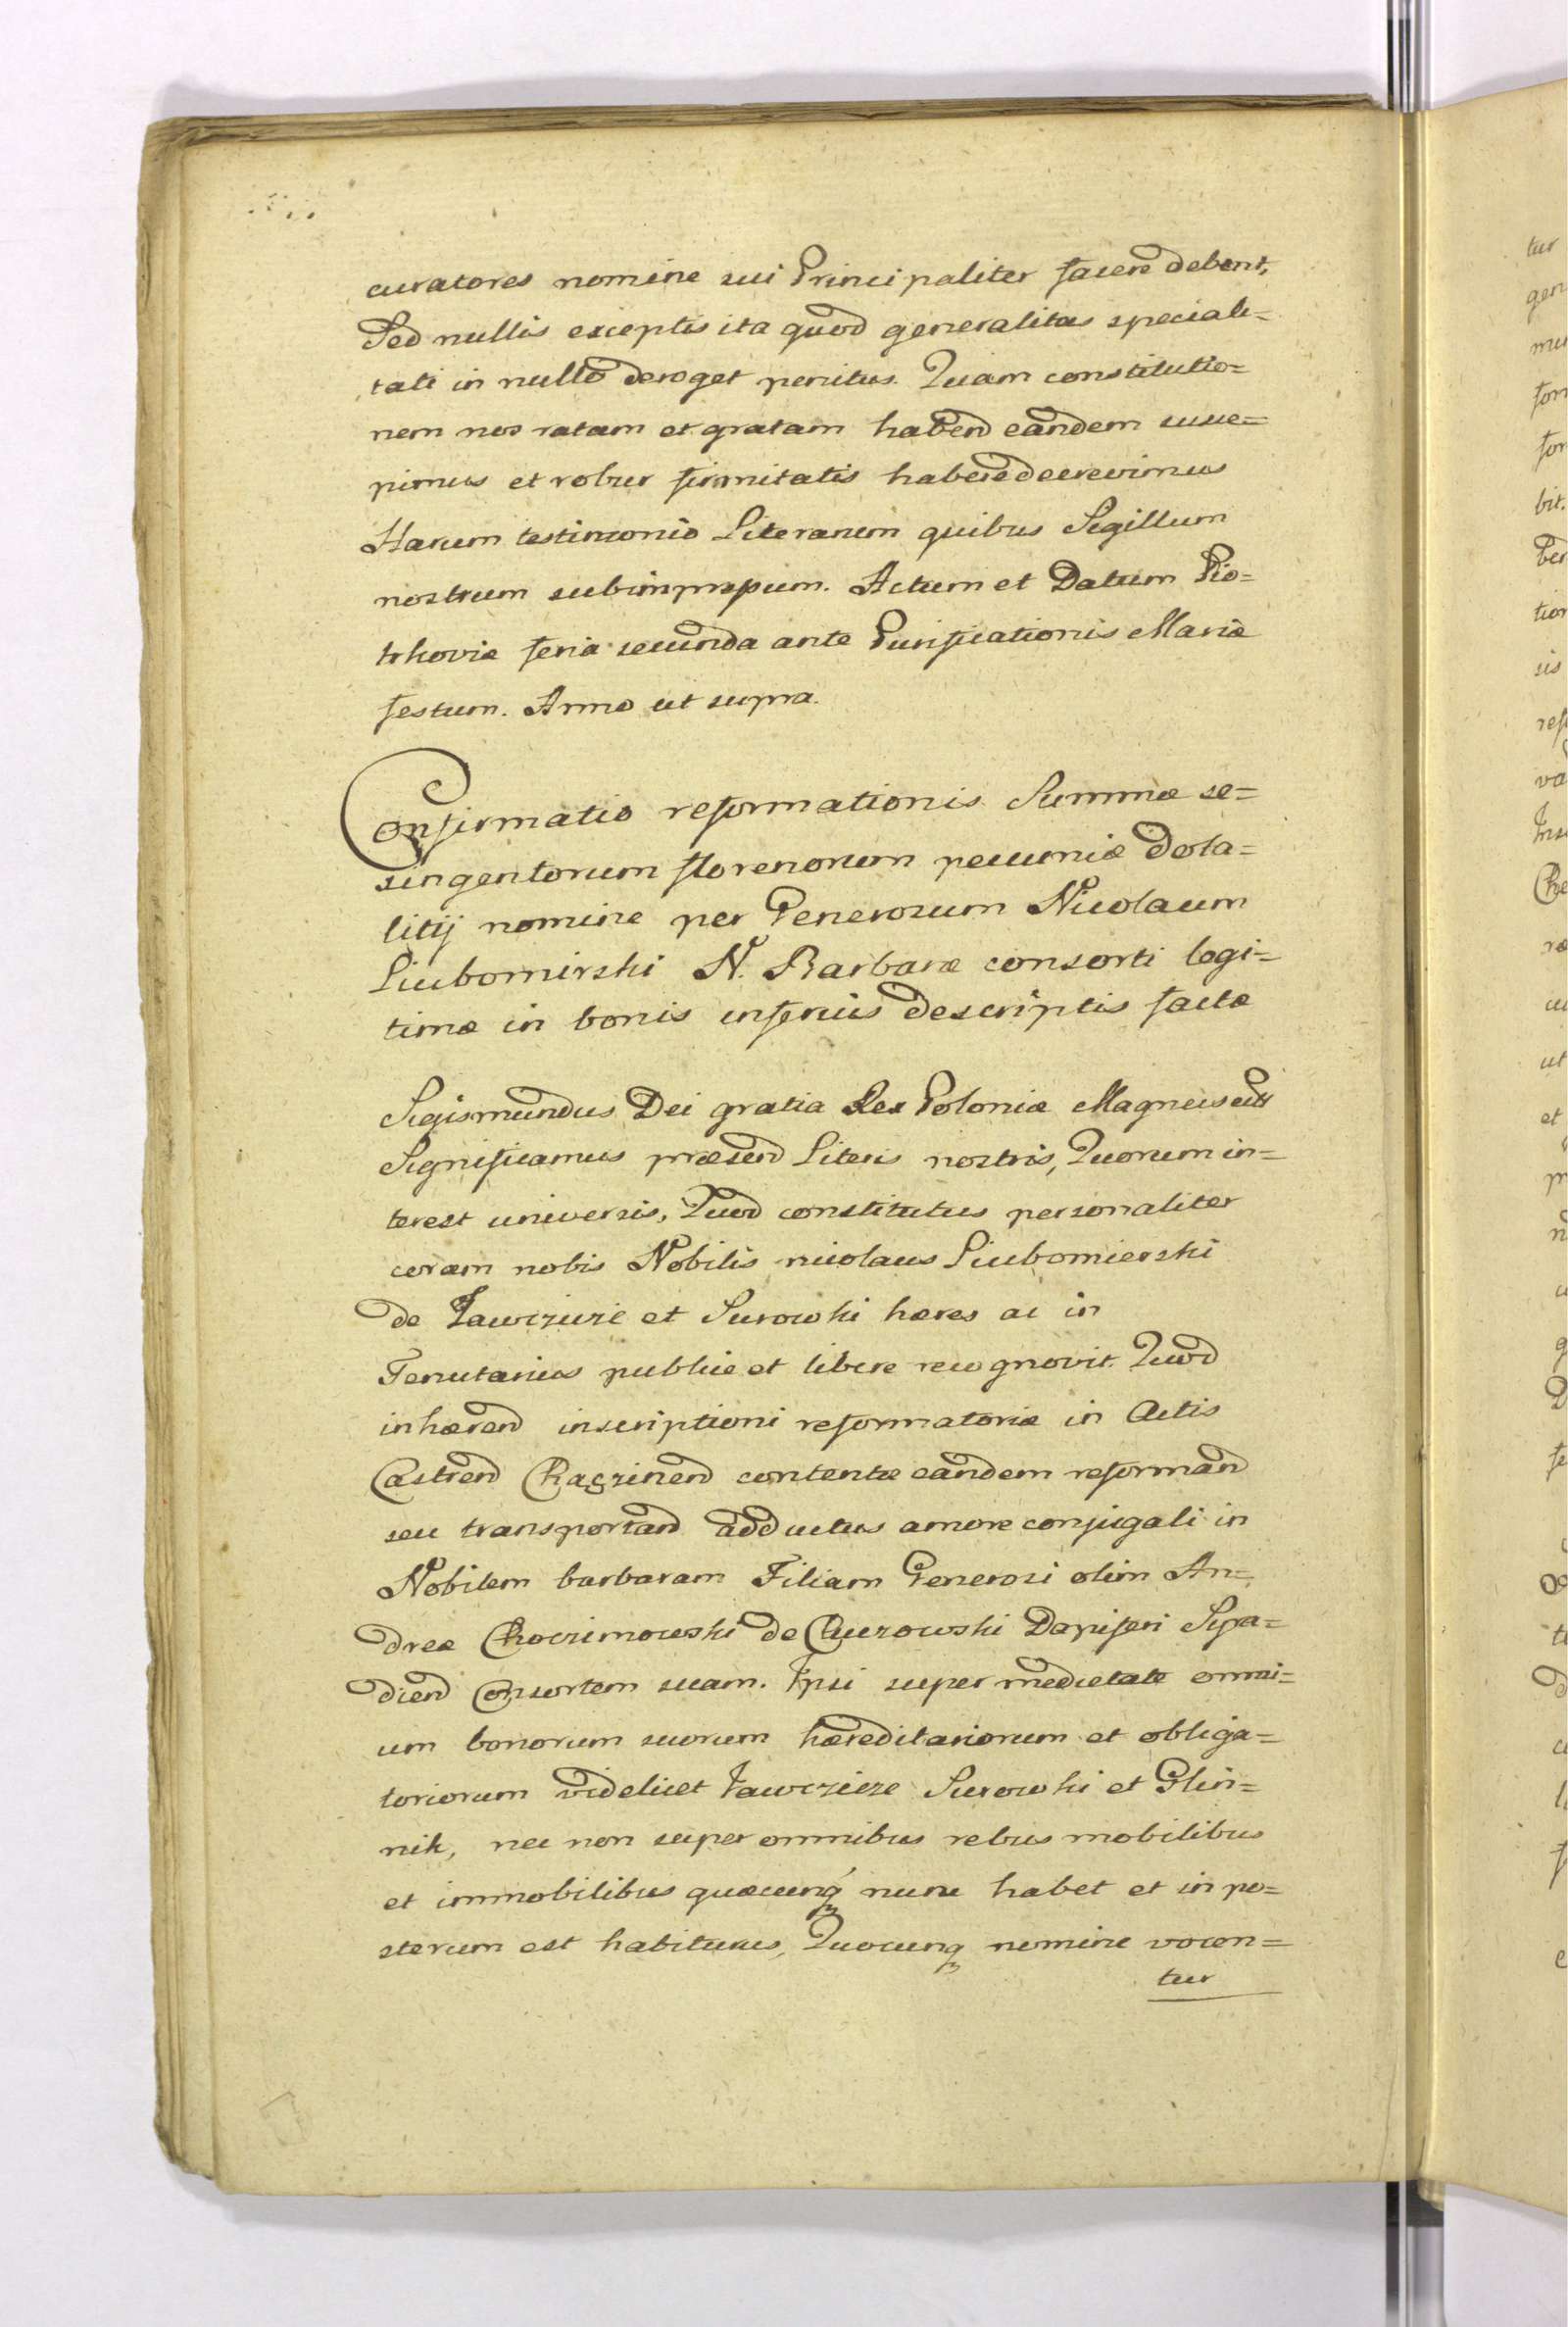 curatores nomine sui Principaliter facere debent,
Sed nullis exceptis ita quod generalitas speciali=
tati in nullo deroget penitus. Quam constitutio=
nem nos ratam et gratam habend eandem susce=
pimus et robur firmitatis habere decrevimus
Harum testimonio Literarum quibus Sigillum
nostrum subimpressum. Actum et Datum Pio=
trkoviæ feria secunda ante Purificationis Mariæ
festum. Anno ut supra.
Confirmatio reformationis Summæ se=
xingentorum florenorum pecuniæ Dota=
litij nomine per Generosum Nicolaum
Liubomirski N. Barbaræ consorti legi=
timæ in bonis inferius descriptis factæ
Sigismundus Dei gratia Rex Poloniæ Magnus
Significamus præsend Literis nostris, Quorum in=
terest universis, Quod constitutus personaliter
coram nobis Nobilis nicolaus Liubomierski
de et Surowki hæres ac in
Tenutarius publice et libere recognovit. Quod
inhærend inscriptioni reformatoriæ in Actis
Castrend contentæ eandem reformand
seu transportand adductus amore conjugali in
Nobilem barbaram Filiam Generosi olim An=
dreæ Choczimowski de Dapiferi Syra=
diend Consortem suam. Ipsi super medietate omni=
um bonorum suorum hæreditariorum et obliga=
toriorum videlicet Surowki et Glin=
nik, nec non super omnibus rebus mobilibus
et immobilibus quæcunq nunc habet et in po=
sterum est habiturus, Quocunq nomine vocen=
tur
tur
ut
et